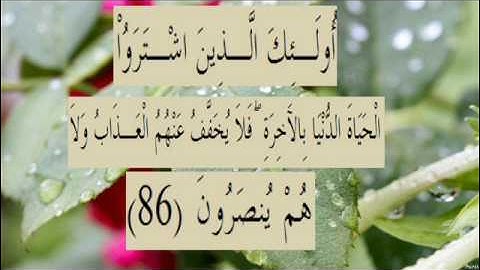 أُولَـــئِكَ الَّـــذِينَ اشْـــتَرَوُاْ
الْحَيَاةَ الدُّنْيَا بِالآخِرَةِ ۖ فَلاَ يُخَفَّفُ عَنْهُمُ الْعَـــذَابُ وَلاَ
هُمْ يُنصَرُونَ (86)